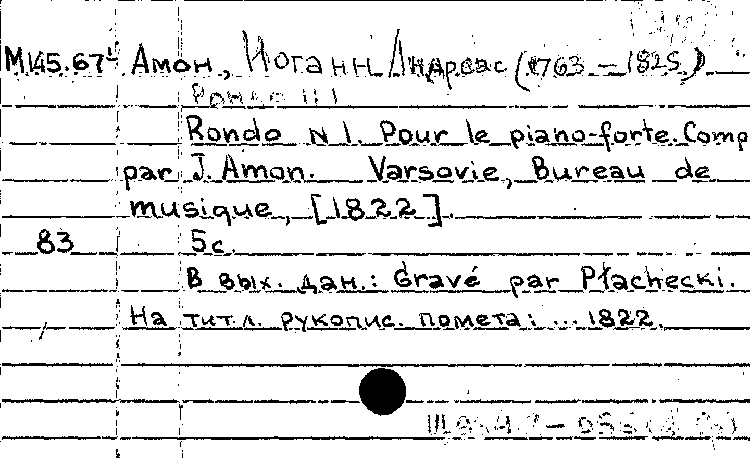 М145.67 Амон, Иоганн Андреас (1763 – 1825)
Рондо
Rondo N 1. Pour le piano-forte. Comp
par J. Amon. Varsovie, Bureau de
musique, [1822].
83 5 с.
В вых. дан.: Gravé par Płachecki.
На тит.л. рукопис. помета: ... 1822.